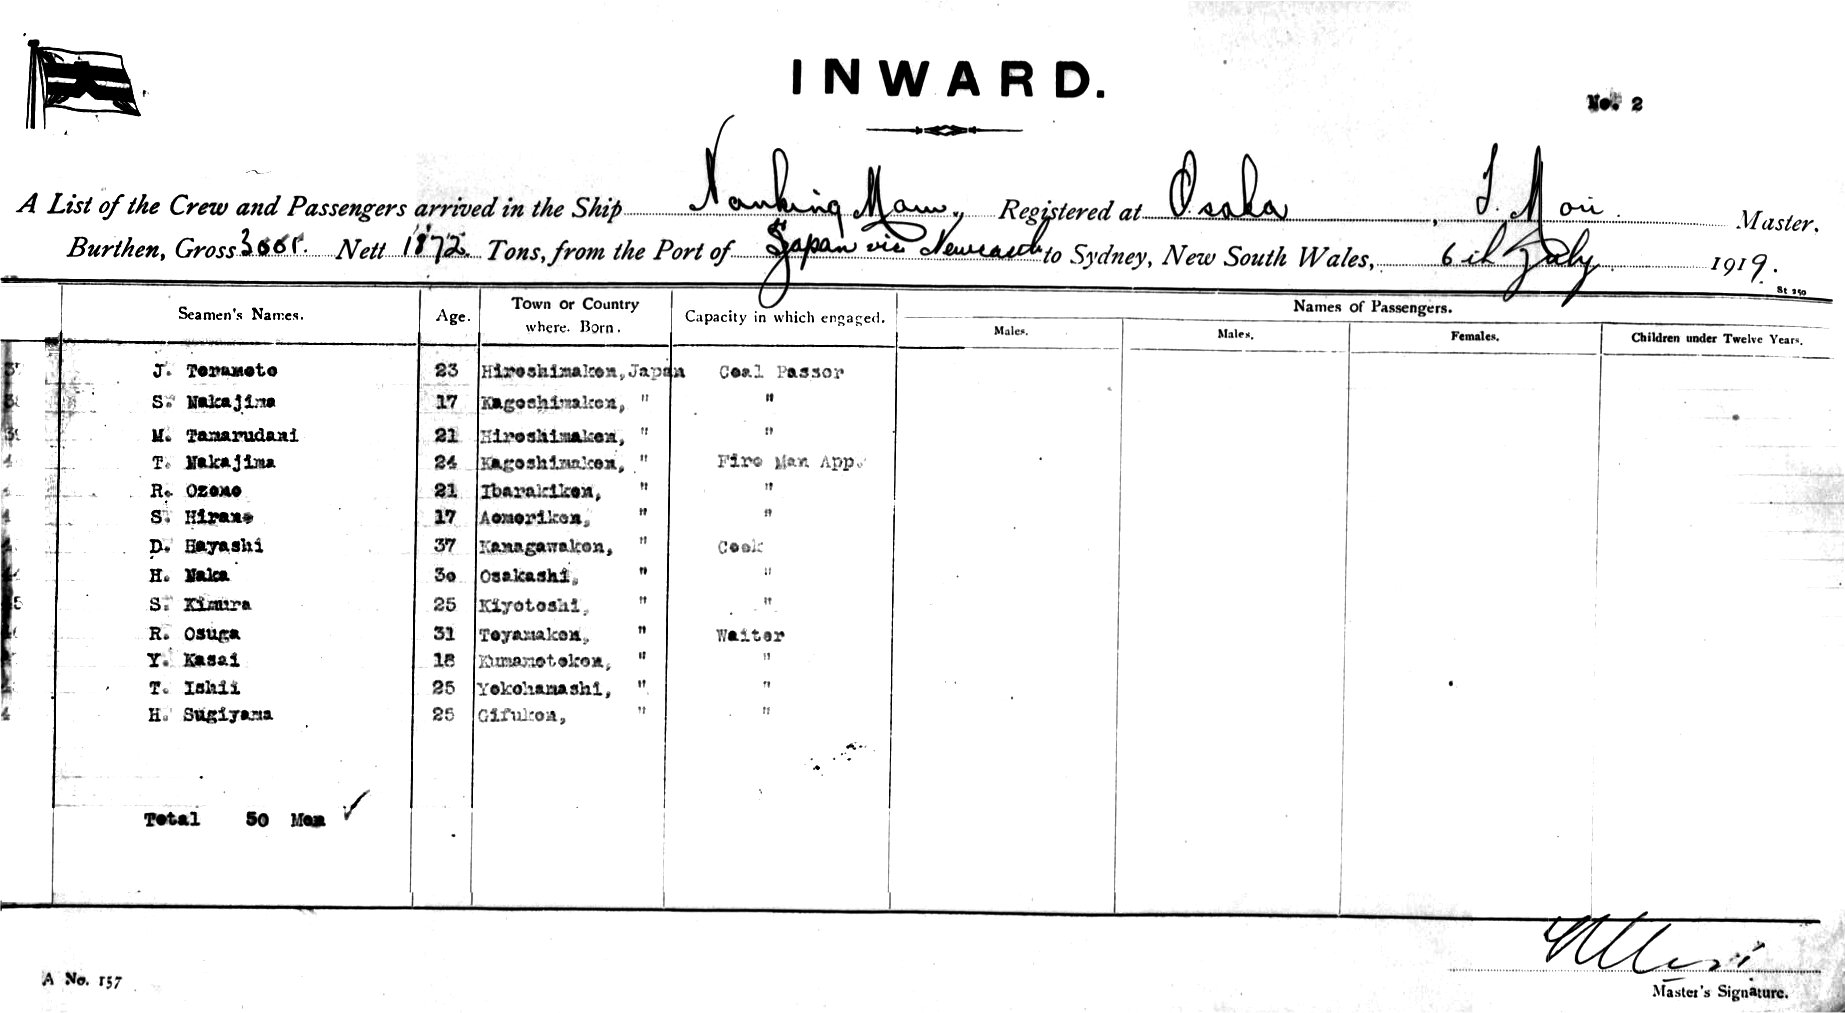 INWARD.
No. 2
A List of the Crew and Passengers arrived in the Ship Nanking Maru, Registered at Osaka, T. Mori Master.
Burthen, Gross 3005. Nett 1872. Tons, from the Port of Japan via Newcastle to Sydney, New South Wales, 6th July 1919.
St 250
Seamen's Names. Age. Town or Country where Born. Capacity in which engaged. Names of Passengers.
Males. Males. Females. Children under Twelve Years.
J. Teramoto 23 Hiroshimaken, Japan Coal Passer
S. Nakajima 17 Kagoshimaken, " "
M. Tamarudani 21 Hiroshimaken, " "
T. Nakajima 24 Kagoshimaken, " Fire Man App.
R. Ozono 21 Ibarakiken, " "
S. Hirano 17 Aomoriken, " "
D. Hayashi 37 Kanagawaken, " Cook
H. Naka 30 Osakashi, " "
S. Kimura 25 Kiyotoshi, " "
R. Osuga 31 Toyamaken, " Waiter
Y. Kasai 18 Kumamotoken, " "
T. Ishii 25 Yokohamashi, " "
H. Sugiyama 25 Gifuken, " "
Total 50 Men
Master's Signature.
A No. 157